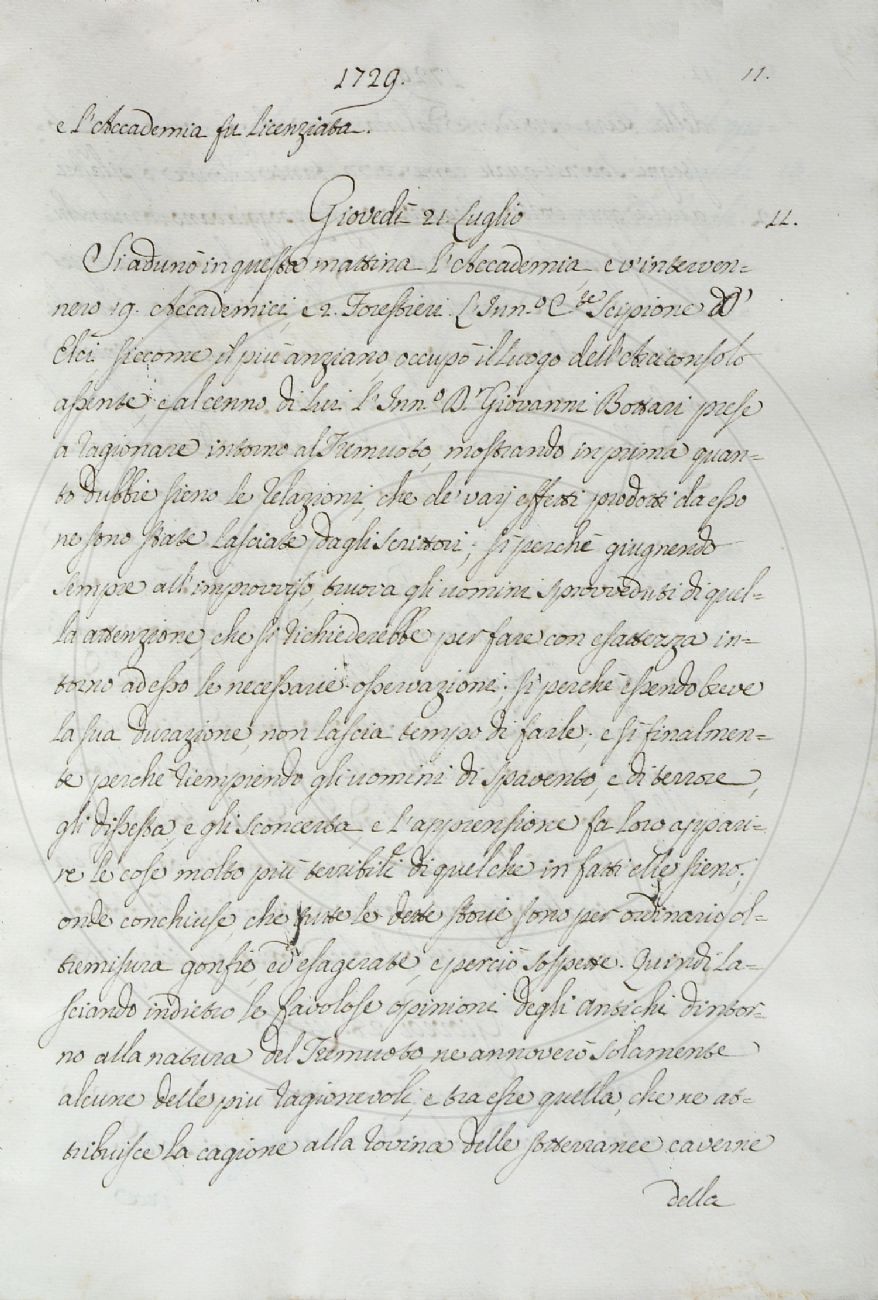 1729.
11.
e l'Accademia fu licenziata.
Giovedì 21. Luglio
11.
Si adunò in questa mattina l'Accademia, e v'interven-
nero 19. Accademici, e 2. Forestieri. L'Inn.º C.te Scipione d'
Elci siccome il più anziano occupò il luogo dell'Arciconsolo
assente; e al cenno di lui l'Inn.º D.r Giovanni Bottari prese
a ragionare intorno al Tremuoto, mostrando in prima quan-
to dubbie sieno le relazioni, che de' varj effetti prodotti da esso
ne sono state lasciate dagli scrittori; sì perchè giugnendo
sempre all'improvviso, truova gli uomini sprovveduti di quel-
la attenzione, che si richiederebbe per fare con esattezza in-
torno ad esso le necessarie osservazioni; sì perchè essendo breve
la sua durazione, non lascia tempo di farle; e sì finalmen-
te perchè riempiendo gli uomini di spavento, e di terrore,
gli dissesta, e gli sconcerta e l'apprensione fa loro appari-
re le cose molto più terribili di quel che in fatti elle sieno;
onde conchiuse, che tutte le dette storie sono per ordinario ol-
tremisura gonfie, ed esagerate, e perciò sospette. Quindi la-
sciando indietro le favolose opinioni degli antichi dintor-
no alla natura del Tremuoto, ne annoverò solamente
alcune delle più ragionevoli, e tra esse quella, che ne at-
tribuisce la cagione alla rovina delle sotterranee caverne
della